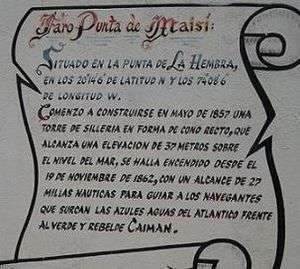 Faro Punta de Maisi:
SITUADO EN LA PUNTA DE LA HEMBRA,
EN LOS 20º146 DE LATITUD N Y LOS 74º086
DE LONGITUD W.
COMENZO A CONSTRUIRSE EN MAYO DE 1857 UNA
TORRE DE SILLERIA EN FORMA DE CONO RECTO, QUE
ALCANZA UNA ELEVACION DE 37 METROS SOBRE
EL NIVEL DEL MAR, SE HALLA ENCENDIDO DESDE EL
19 DE NOVIEMBRE DE 1862, CON UN ALCANCE DE 27
MILLAS NAUTICAS PARA GUIAR A LOS NAVEGANTES
QUE SURCAN LAS AZULES AGUAS DEL ATLANTICO FRENTE
AL VERDE Y REBELDE CAIMAN.